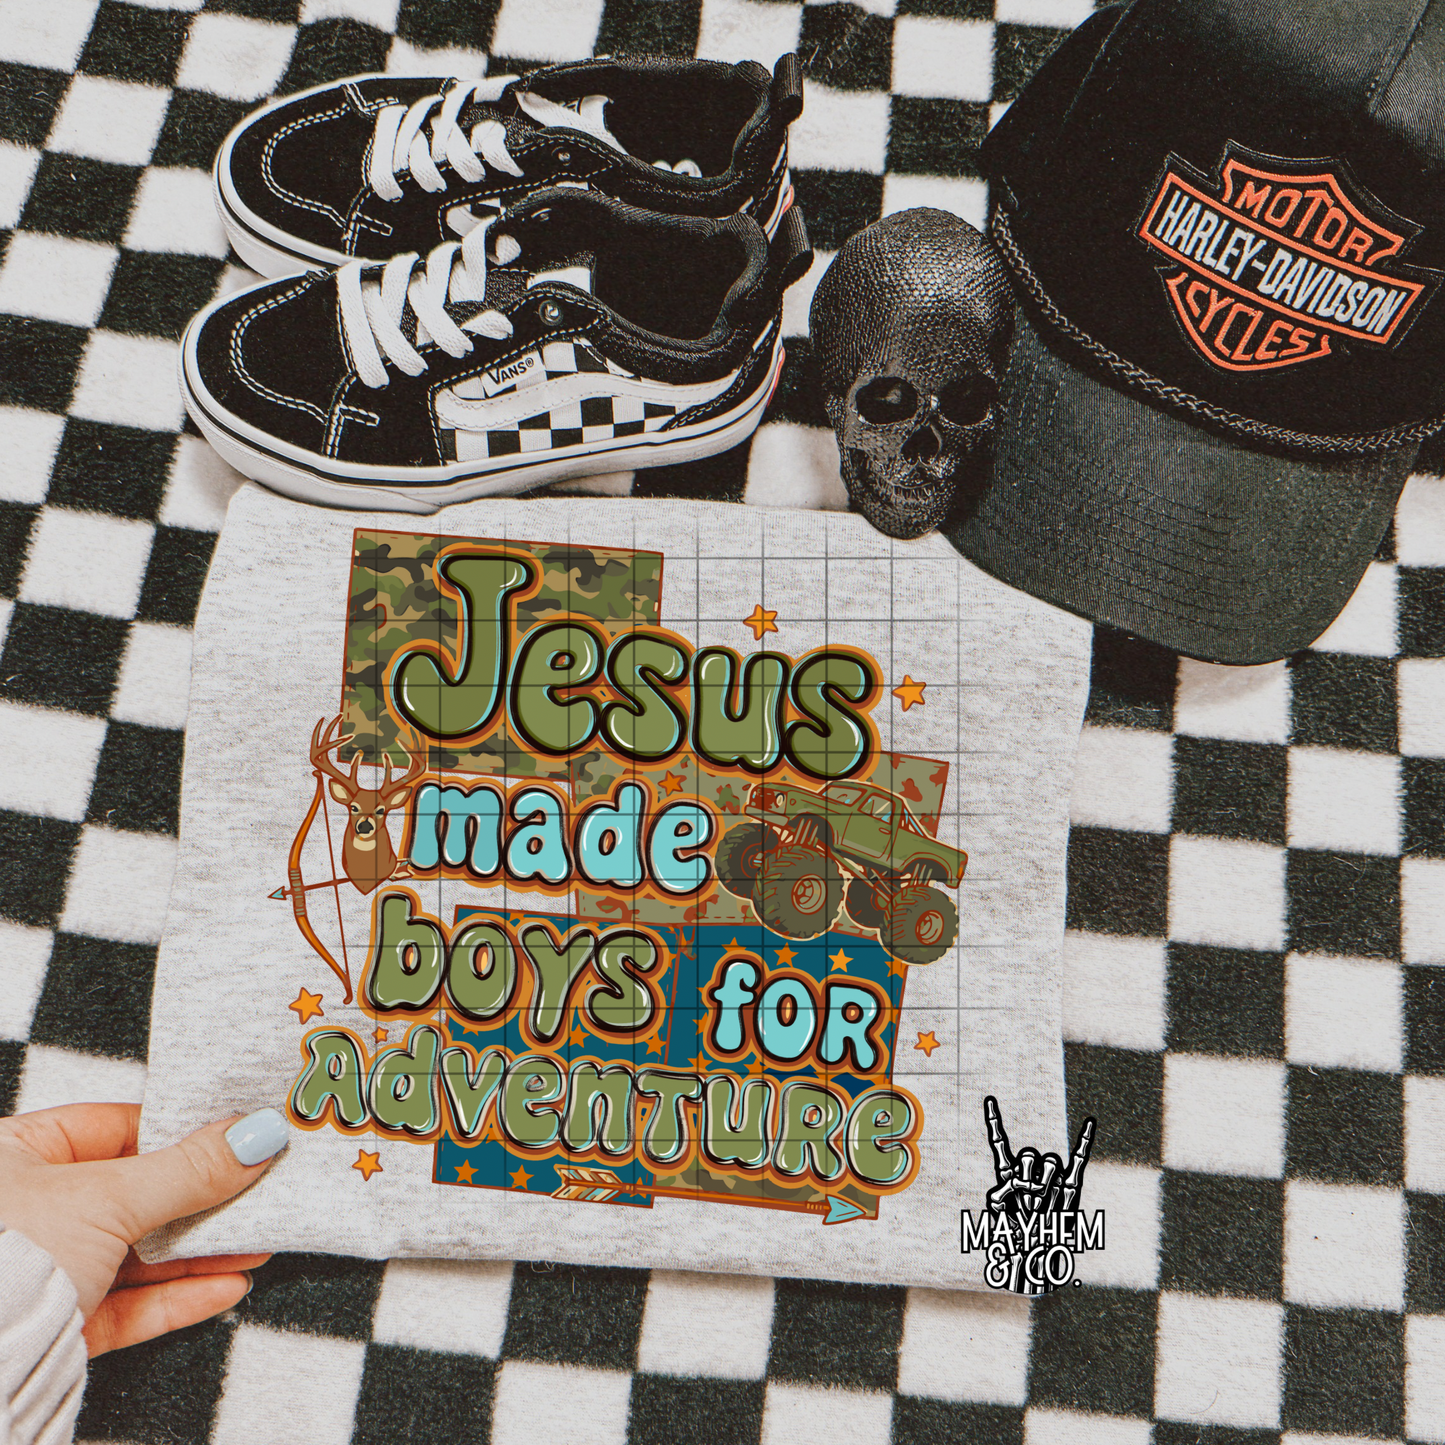 VANS®
MOTOR
HARLEY-DAVIDSON
CYCLES
Jesus
made
boys for
Adventure
MAYHEM
& CO.